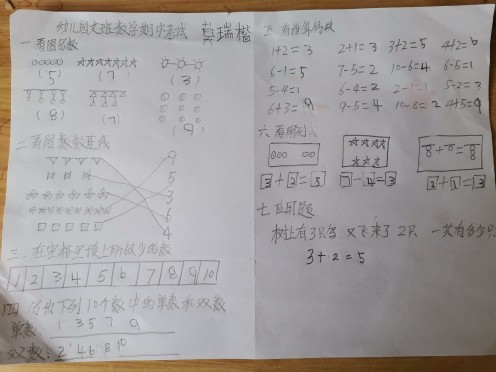 幼儿园大班数学期末考试 莫瑞楷
一看图写数
(5) (7) (3)
(8) (7) (9)
二看图数数连线
9
5
3
6
4
三、在空格里填上所缺少的数
1 2 3 4 5 6 7 8 9 10
四写出下列10个数中的单数和双数
单数: 1 3 5 7 9
双数: 2 4 6 8 10
五、看清算得数
1+2=3 2+1=3 3+2=5 4+2=6
6-1=5 7-5=2 10-6=4 6-5=1
5-4=1 6-4=2 2-1=1 5-2=3
6+3=9 9-5=4 10-8=2 4+5=9
六、看图列式
3+2=5 7-4=3 2+1=3
七、应用题
树上有3只鸟 又飞来了2只 一共有多少只
3+2=5